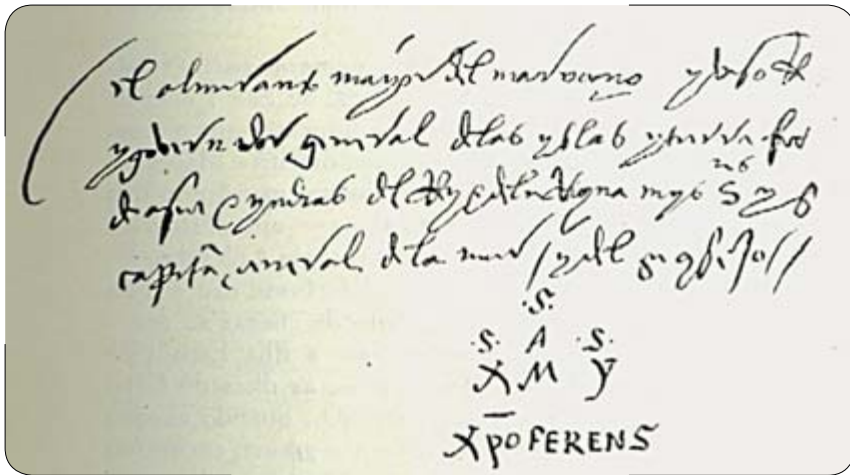 el almirante mayor del mar oceano y visorey
y governador general de las yslas y tierra firme
de asia e yndias del Rey e de la Reyna mys S^res y s
capitan general de la mar y del
.S.
.S. A .S.
X M Y
Xp̄o FERENS